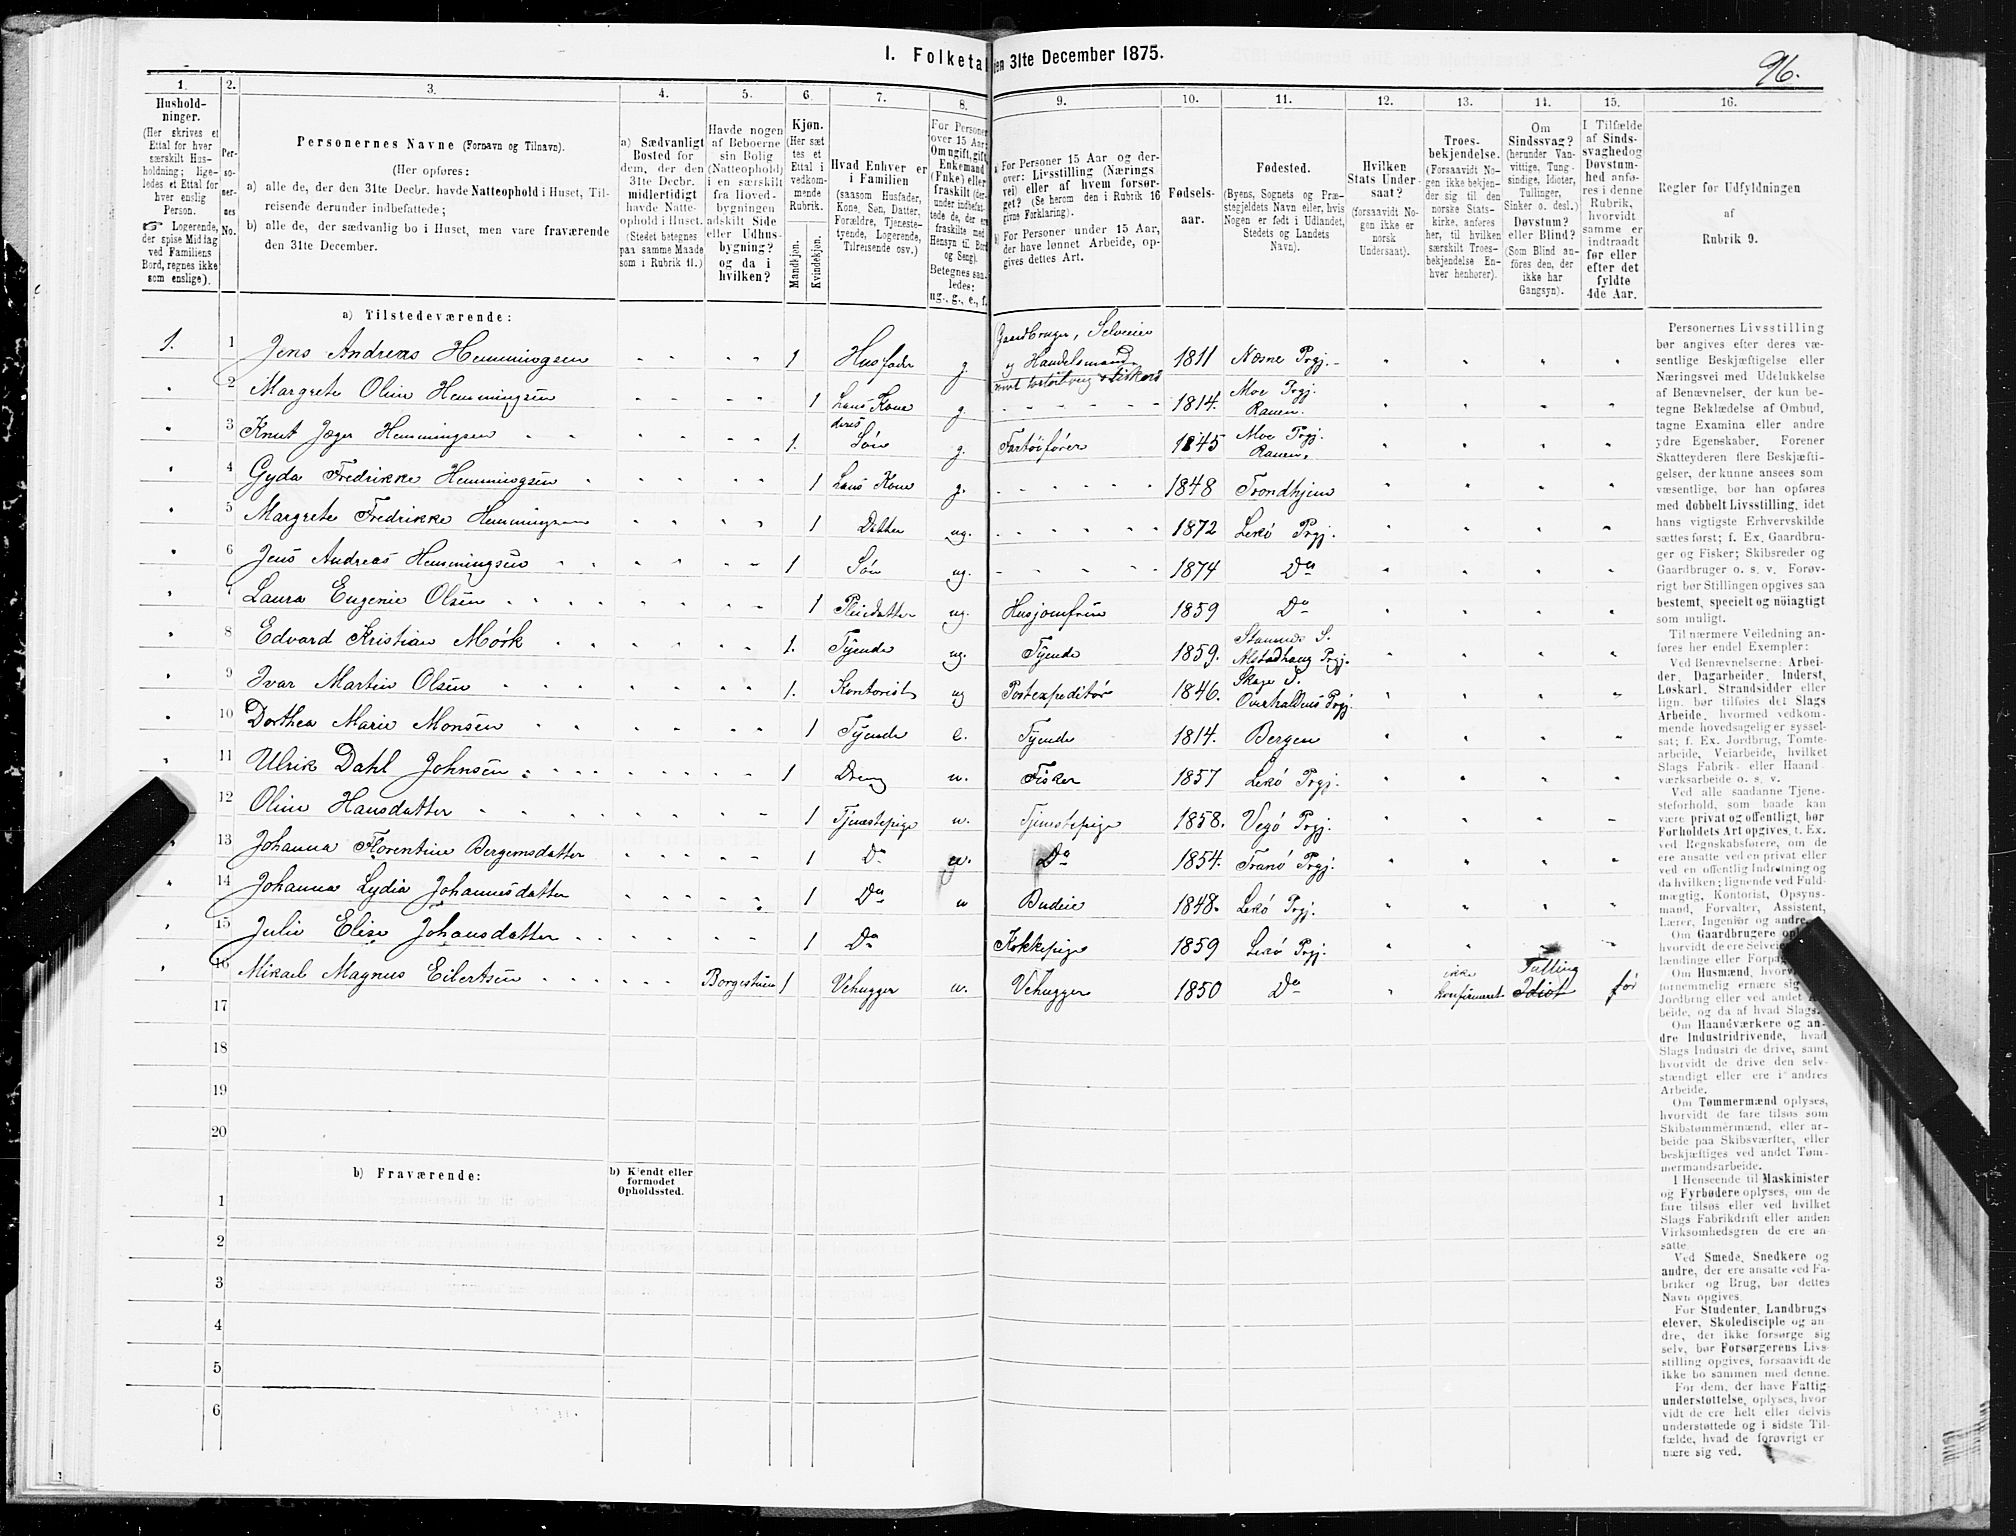 I. Folketal den 31te December 1875.
96.
1.
2.
3.
4.
5.
6.
7.
8.
9.
10.
11.
12.
13.
14.
15.
16.
Hushold-
ninger.
(Her skrives et
Ettal for hver
særskilt Hus-
holdning; lige-
ledes et Ettal for
hver enslig
Person.
☞ Logerende,
der spise Middag
ved Familiens
Bord, regnes ikke
som enslige).
Per-
so-
ner-
nes
No.
Personernes Navne (Fornavn og Tilnavn).
(Her opføres:
a) alle de, der den 31te Decbr. havde Natteophold i Huset, Til-
reisende derunder indbefattede;
b) alle de, der sædvanlig bo i Huset, men vare fraværende
den 31te December.
a) Sædvanligt
Bosted for
dem, der den
31te Decbr.
midlertidigt
havde Natte-
ophold i Huset.
(Stedet betegnes
paa samme Maade
som i Rubrik 11.)
Havde nogen
af Beboerne
sin Bolig
(Natteophold)
i en særskilt
fra Hoved-
bygningen
adskilt Side
eller Udhus-
bygning?
og da i
hvilken?
Kjøn.
(Her sæt-
tes et
Ettal i
vedkom-
mende
Rubrik.
Mandkjøn.
Kvindekjøn.
Hvad Enhver er
i Familien
(saasom Husfader,
Kone, Søn, Datter,
Forældre, Tjeneste-
tyende, Logerende,
Tilreisende osv.)
For Personer
over 15 Aar:
Om ugift, gift,
Enkemand
(Enke) eller
fraskilt (der-
under indbefat-
tede de, der ere
fraskilte med
Hensyn til Bord
og Seng).
Betegnes saa-
ledes:
ug., g., e., f.
a) For Personer 15 Aar og der-
over: Livsstilling (Nærings-
vei) eller af hvem forsør-
get? (Se herom den i Rubrik 16
givne Forklaring).
b) For Personer under 15 Aar,
der have lønnet Arbeide, op-
gives dettes Art.
Fødsels-
aar.
Fødested.
(Byens, Sognets og Præ-
stegjeldets Navn eller, hvis
Nogen er født i Udlandet,
Stedets og Landets
Navn).
Hvilken
Stats Under-
saat?
(forsaavidt No-
gen ikke er
norsk
Undersaat).
Troes-
bekjendelse.
(Forsaavidt No-
gen ikke bekjen-
der sig til den
norske Stats-
kirke, anføres
her, til hvilken
særskilt Troes-
bekjendelse En-
hver henhører).
Om
Sindssvag?
(herunder Van-
vittige, Tung-
sindige, Idioter,
Tullinger,
Sinker o. desl.)
Døvstum?
eller Blind?
(Som Blind an-
føres den, der
ikke har
Gangsyn).
I Tilfælde
af Sinds-
svaghed og
Døvstum-
hed anfø-
res i denne
Rubrik,
hvorvidt
samme er
indtraadt
før eller
efter det
fyldte
4de Aar.
Regler før Udfyldningen
af
Rubrik 9.
a) Tilstedeværende:
1. 1 Jens Andreas Hemmingsen 1 Husfader g. Gaardbruger, Selveier og Handelsmand 1811 Næsne Prgj.
2 Margrete Olin Hemmingsen 1 hans Kone g. 1814. Moe Prgj. Ranen.
3 Knut Jæger Hemmingsen 1. deres Søn g. Fartøifører 1845 Moe Prgj. Ranen.
4 Gyda Fredrikke Hemmingsen 1 hans Kone g. 1848 Trondhjem
5 Margrete Fredrikke Hemmingsen 1 Datter ug. 1872 Lekø Prgj.
6 Jens Andreas Hemmingsen 1 Søn ug. 1874 Do
7 Laura Eugenie Olsen 1 Pleiedatter ug. Husjomfru 1859 Do
8 Edvard Kristian Mørk 1. Tyende ug. Tyende 1859. Stamnes S. Alstadhaug Prgj.
9 Ivar Martin Olsen 1. Kontorist ug Postexpeditør 1846. Skage S. Overhaldens Prgj.
10 Dorthea Marie Monsen 1 Tyende e. Tyende 1814. Bergen
11 Ulrik Dahl Johnsen 1 Dreng u. Fisker 1857 Lekø Prgj.
12 Oline Hansdatter 1 Tjenestepige u. Tjenestepige 1858. Vegø Prgj.
13 Johanna Florentine Bergemsdatter 1 Do u. Do 1854. Tranø Prgj.
14 Johanna Lydia Johannesdatter 1 Do u Budeie 1848. Lekø Prgj.
15 Julie Elise Johansdatter 1 Do Kokkepige 1859 Lekø Prgj.
16 Mikael Magnus Eilertsen Borgestuen 1 Vehugger u. Vehugger 1850 Do ikke konfirmeret Tulling Idiot før
17
18
19
20
b) Fraværende:
b) Kjendt eller
formodet
Opholdssted.
1
2
3
4
5
6
Personernes Livsstilling
bør angives efter deres væ-
sentlige Beskjæftigelse eller
Næringsvei med Udelukkelse
af Benævnelser, der kun be-
tegne Beklædelse af Ombud,
tagne Examina eller andre
ydre Egenskaber. Forener
Skatteyderen flere Beskjæfti-
gelser, der kunne ansees som
væsentlige, bør han opføres
med dobbelt Livsstilling, idet
hans vigtigste Erhvervskilde
sættes først; f. Ex. Gaardbru-
ger og Fisker; Skibsreder og
Gaardbruger o. s. v. Forøv-
rigt bør Stillingen opgives saa
bestemt, specielt og nöiagtigt
som muligt.
Til nærmere Veiledning an-
føres her endel Exempler:
Ved Benævnelserne: Arbei-
der, Dagarbeider, Inderst,
Løskarl, Strandsidder eller
lign. bør tilføies det Slags
Arbeide, hvormed vedkom-
mende hovedsagelig er syssel-
sat; f. Ex. Jordbrug, Tomte-
arbeide, Veiarbeide, hvilket
Slags Fabrik- eller Haand-
værksarbeide o. s. v.
Ved alle saadanne Tjene-
steforhold, som baade kan
være privat og offentligt, bør
Forholdets Art opgives, t. Ex.
ved Regnskabsførere, om de
ere ansatte ved en privat eller
ved en offentlig Indretning og
da hvilken; lignende ved Fuld-
mægtig, Kontorist, Opsyns-
mand, Forvalter, Assistent,
Lærer, Ingeniør og andre.
Om Gaardbrugere
hvorvidt de ere Selveiere
lændinge eller
Om Husmænd,
fornemmelig ernære sig
Jordbrug eller ved andet
beide, og da af hvad Slags.
Om Haandværkere og an-
dre Industridrivende, hvad
Slags Industri de drive, samt
hvorvidt de drive den selv-
stændigt eller ere i andres
Arbeide.
Om Tømmermænd oplyses,
hvorvidt de fare tilsøs som
Skibstømmermænd, eller ar-
beide paa Skibsværfter, eller
beskjæftiges ved andet Tøm-
mermandsarbeide.
I Henseende til Maskinister
og Fyrbødere oplyses, om de
fare tilsøs eller ved hvilket
Slags Fabrikdrift eller anden
Virksomhedsgren de ere an-
satte
Ved Smede, Snedkere og
andre, der ere ansatte ved Fa-
briker og Brug, bør dettes
Navn opgives.
For Studenter, Landbrugs
elever, Skoledisciple og an-
dre, der ikke forsørge sig
selv, bør Forsørgerens Livs-
stilling opgives, forsaavidt de
ikke bo sammen med denne.
For dem, der have Fattig
understøttelse, oplyses, hvor
vidt de ere helt eller delvis
understøttede og i sidste Til-
fælde, hvad de forøvrigt er
nære sig ved.